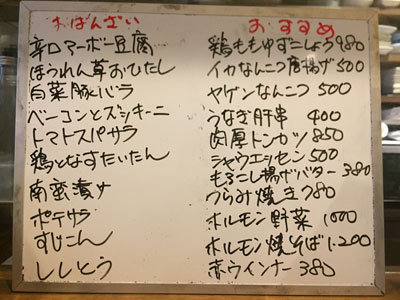 おばんざい
辛口マーボー豆腐
ほうれん草おひたし
白菜豚バラ
ベーコンとズッキーニ
トマトスパサラ
鶏となすたいたん
南蛮漬け
ポテサラ
すじこん
ししとう
おすすめ
鶏ももゆずこしょう980
イカなんこつ唐揚げ500
ヤゲンなんこつ500
うなぎ肝串 400
肉厚トンカツ850
シャウエッセン500
もろこし揚げバター380
つらみ焼き780
ホルモン野菜1000
ホルモン焼そば1200
赤ウインナー380